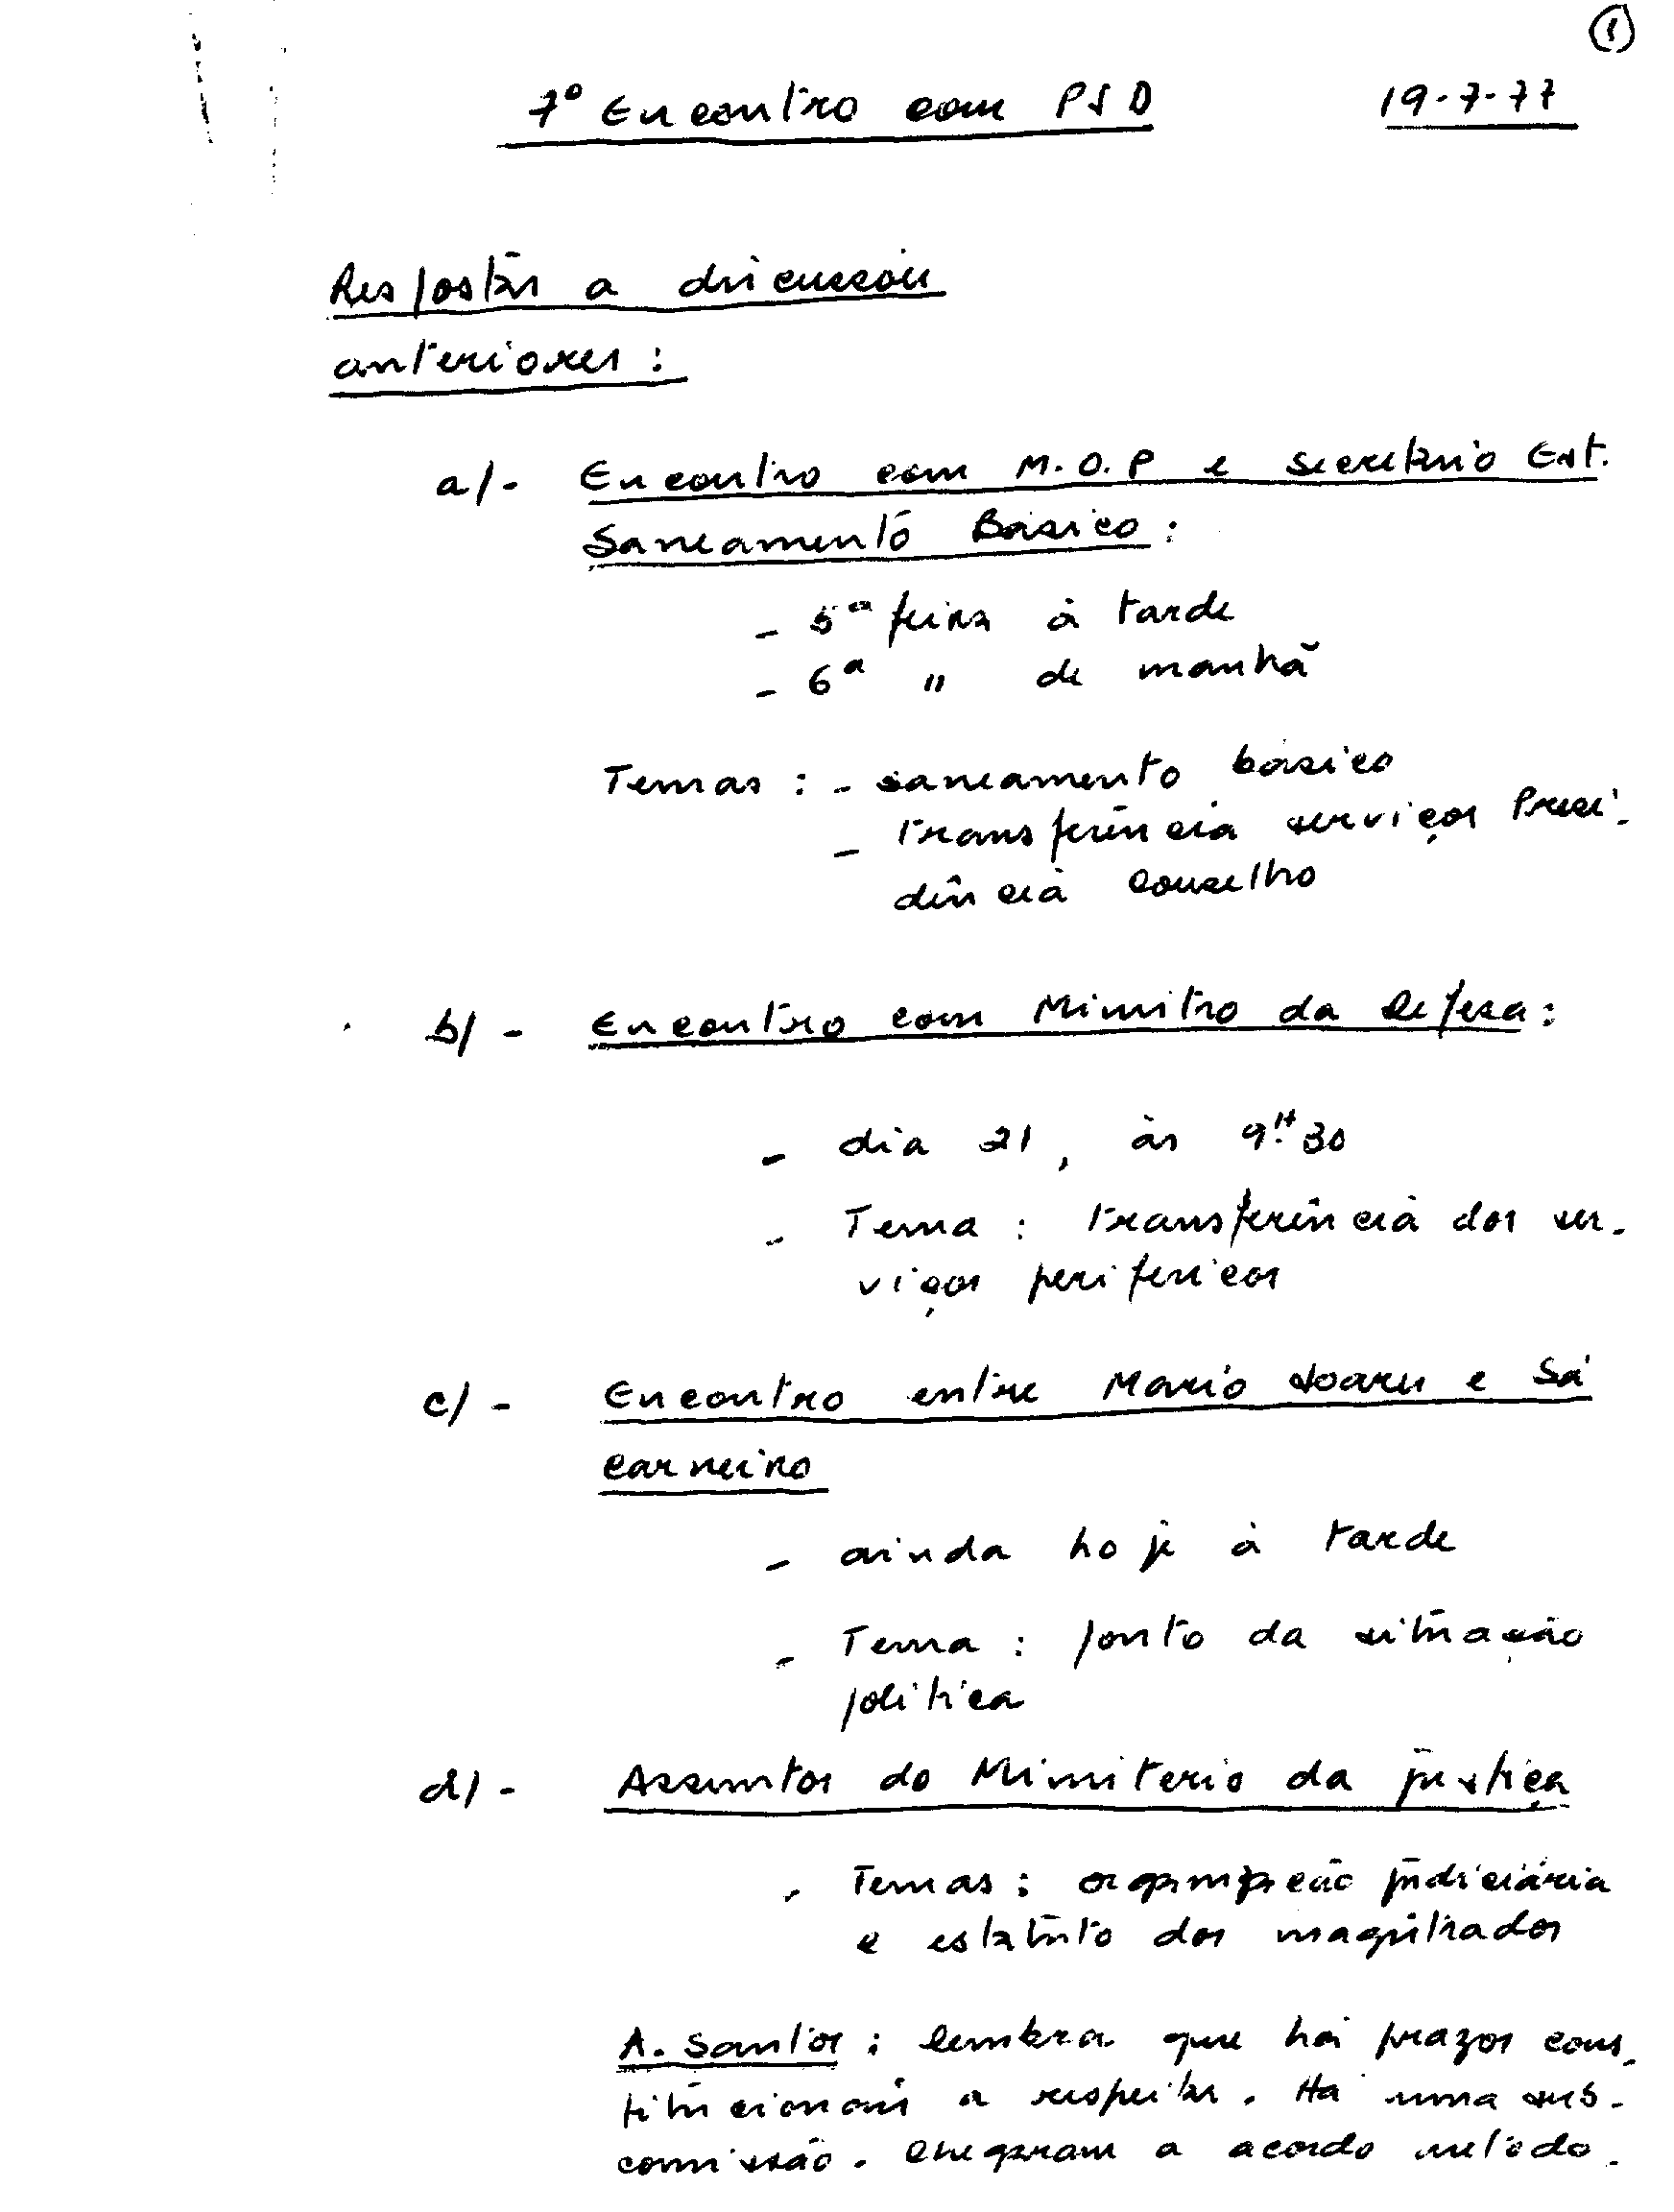 1
7º Encontro com PSD 19-7-77
Respostas a discussões
anteriores:
a/- Encontro com M.O.P e Secretário Est.
Saneamento Básico:
- 5ª feira à tarde
- 6ª " de manhã
Temas: - saneamento básico
- transferência serviços Presi-
dência Conselho
b/- Encontro com Ministro da Defesa:
- dia 21, às 9H30
- Tema: transferência dos ser-
viços periféricos
c/- Encontro entre Mário Soares e Sá
Carneiro
- ainda hoje à tarde
- Tema: ponto da situação
política
d/- Assuntos do Ministério da Justiça
- Temas: organização judiciária
e estatuto dos magistrados
A. Santos: lembra que há prazos cons-
titucionais a respeitar. Há uma sub-
comissão. Chegaram a acordo metodo-